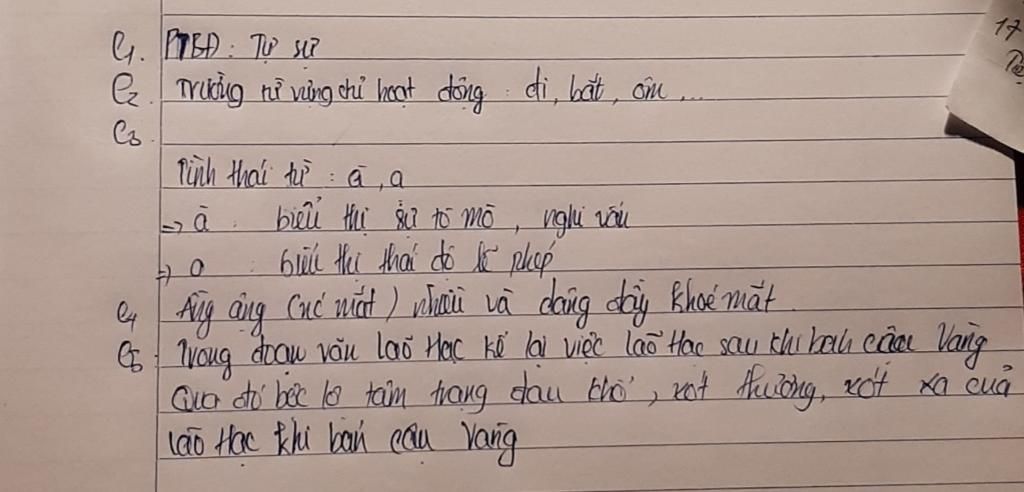 C1. PTBĐ: Tự sự
17
C2. Trường từ vựng chỉ hoạt động: đi, bắt, ôm,...
C3.
Tình thái từ: à, ạ
=> à: biểu thị sự tò mò, nghi vấn
=> ạ: biểu thị thái độ lễ phép
C4 Ầng ậng (nước mắt) nhiều và dâng đầy khoé mắt
C5 Trong đoạn văn Lão Hạc kể lại việc lão Hạc sau khi bán cậu Vàng
Qua đó bộc lộ tâm trạng đau khổ, xót thương, xót xa của
Lão Hạc khi bán cậu Vàng